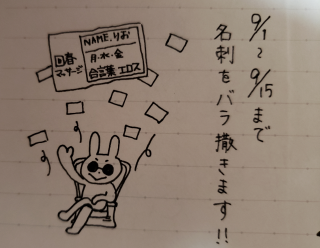 9/1〜9/15まで
名刺をバラ撒きます!!
回春
マッサージ
NAME.りお
月・水・金
合言葉 エロス